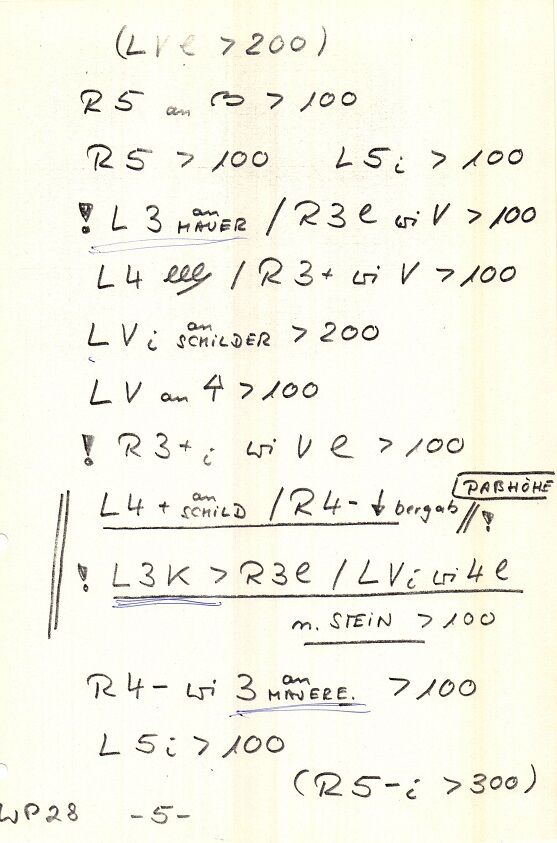 (LVe >200)
R5 an >100
R5 >100 L5i >100
! L3 an MAUER / R3e wi V >100
L4 / R3+ wi V >100
LVi an SCHILDER >200
LV an 4 >100
! R3+i wi Ve >100
PAßHÖHE
L4+ an SCHILD / R4- ↓ bergab // !
! L3K > R3e / LVi wi 4e
n. STEIN >100
R4- wi 3 an MAUERE. >100
L5i >100
(R5-i >300)
WP28 -5-